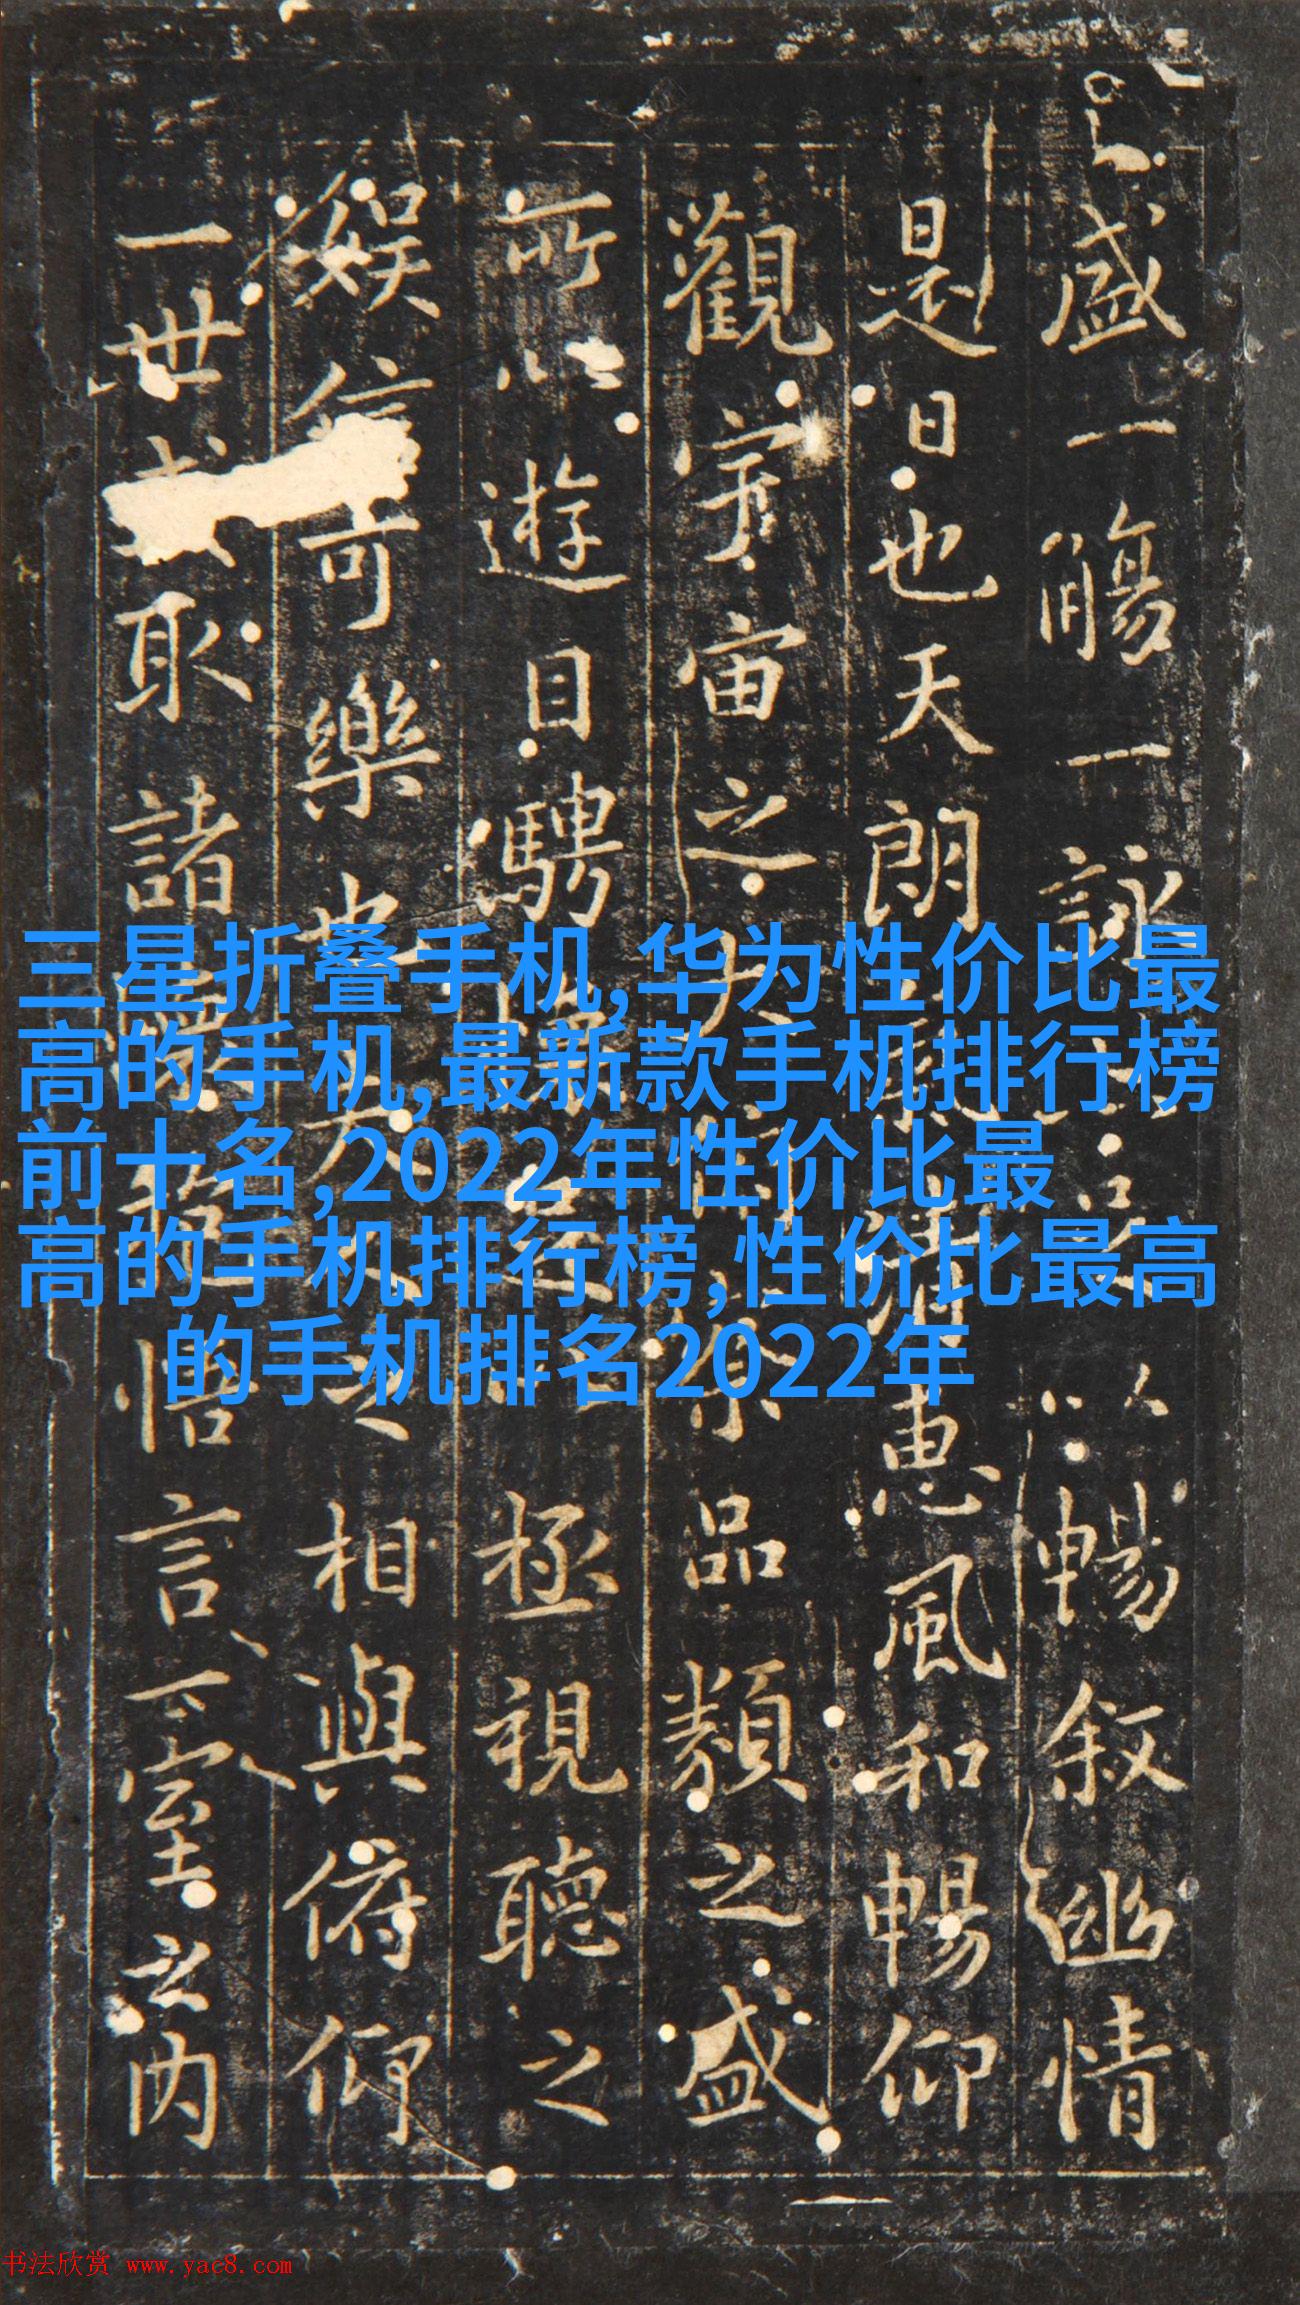 盛一觴一詠以暢叙幽情
是日也天朗惠風和暢仰
觀宇宙之品類之盛
所以遊目騁極視聽之
娱信可樂也相與俯仰
一世取諸悟言一室之内
三星折叠手机,华为性价比最
高的手机,最新款手机排行榜
前十名,2022年性价比最
高的手机排行榜,性价比最高
的手机排名2022年
书法欣赏 www.yac8.com